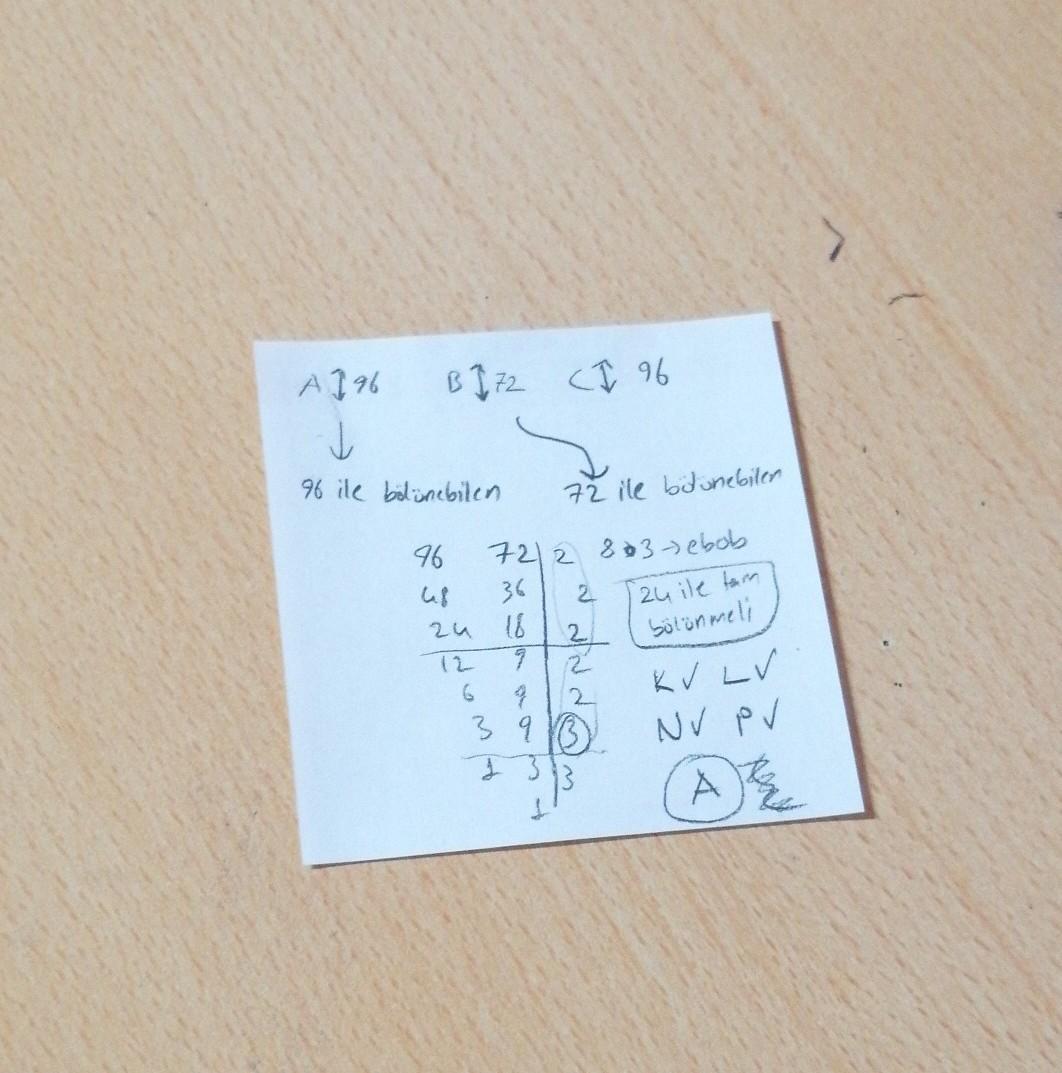 A ↕ 96 B ↕ 72 C ↕ 96
96 ile bölünebilen 72 ile bölünebilen
96 72 2 8·3→ebob
48 36 2 24 ile tam
24 18 2 bölünmeli
12 9 2
6 9 2 K✓ L✓
3 9 3 N✓ P✓
1 3 3
1 A